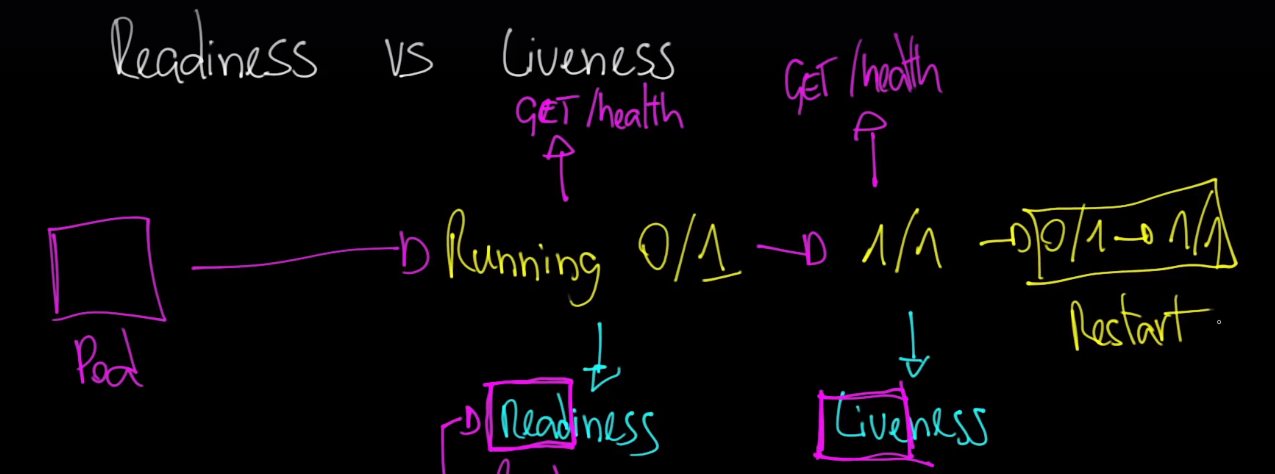 Readiness vs Liveness
GET /health
GET /health
Running 0/1
1/1
0/1 → 1/1
Restart
Pod
Readiness
Liveness